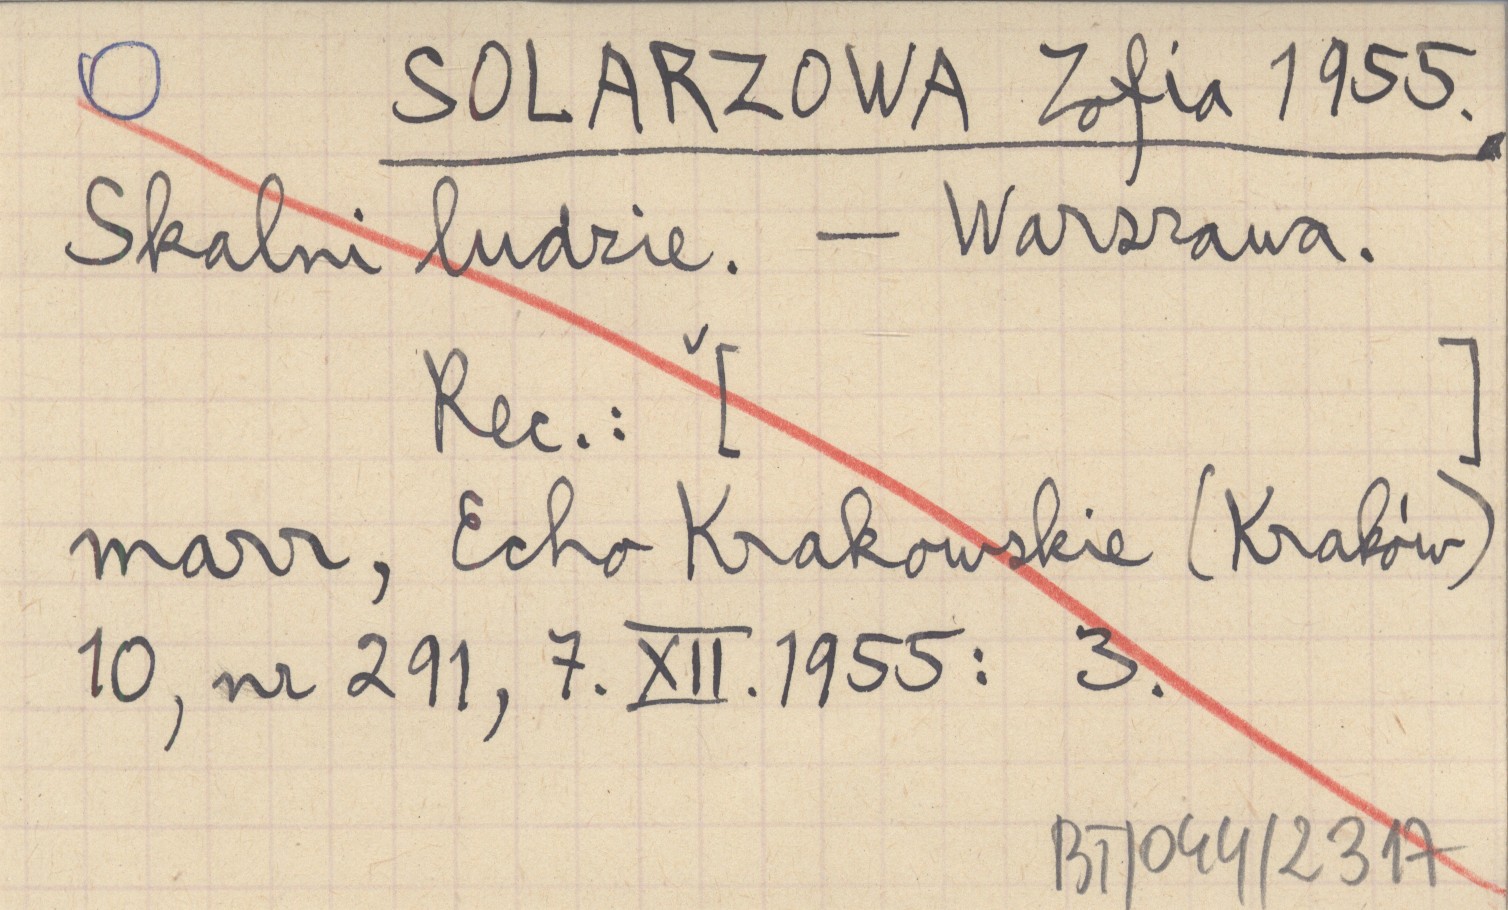 SOLARZOWA Zofia 1955.
Skalni ludzie. — Warszawa.
Rec.: [ ]
marr, Echo Krakowskie (Kraków)
10, nr 291, 7. XII. 1955: 3.
BT/044/2317